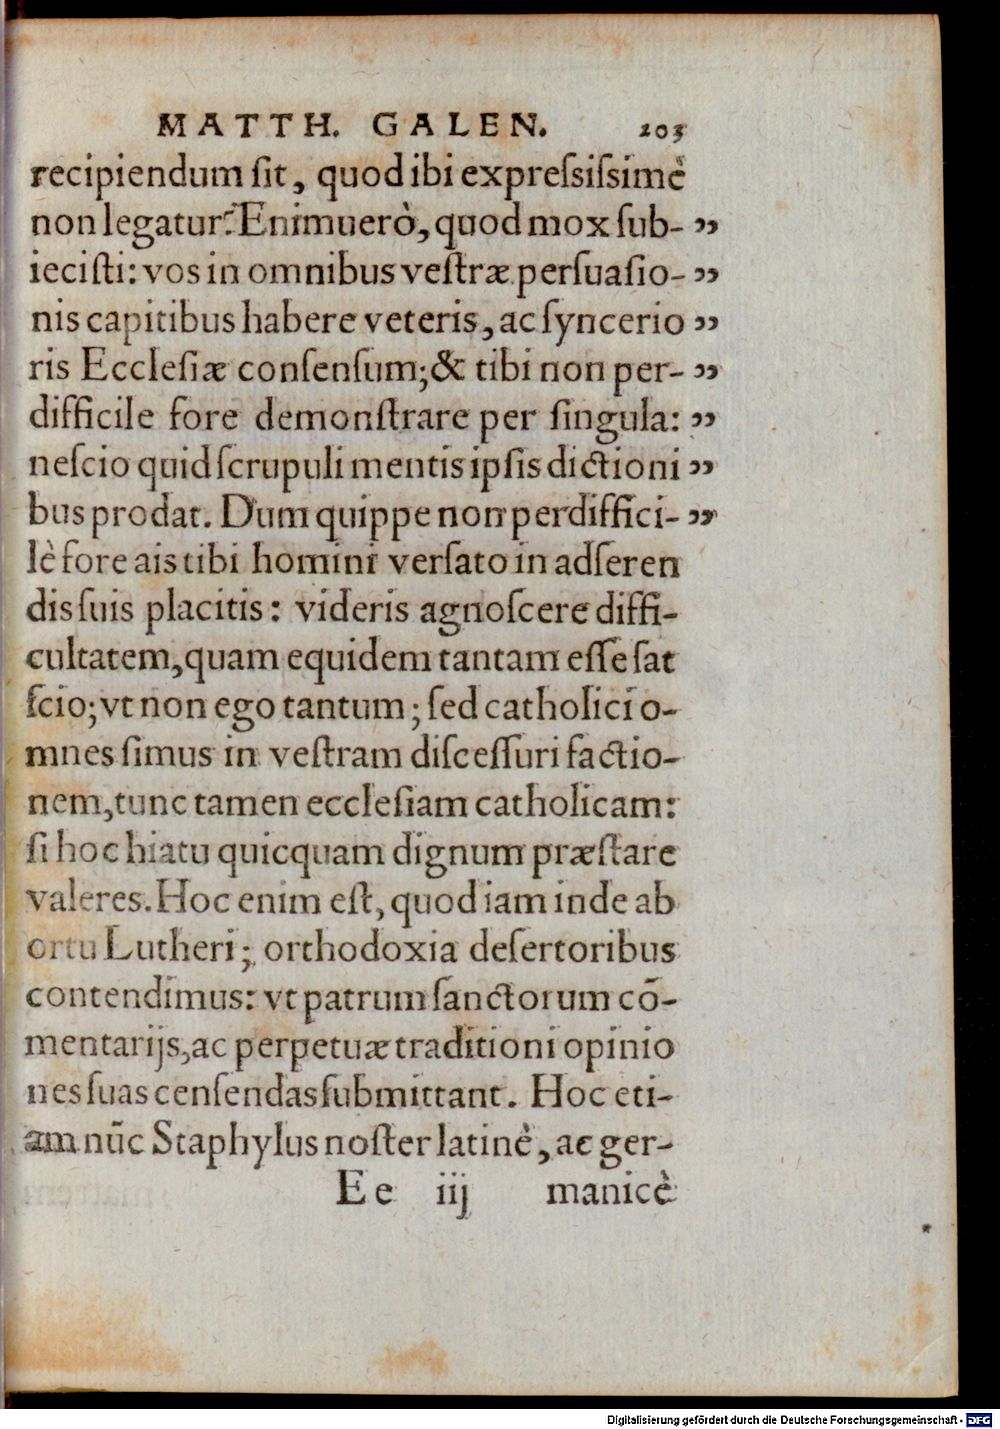 MATTH. GALEN. 203
recipiendum ſit, quod ibi expreſsiſsimè
non legatur? Enimuerò, quod mox ſub- ”
ieciſti: vos in omnibus veſtræ perſuaſio- ”
nis capitibus habere veteris, ac ſyncerio ”
ris Eccleſiæ conſenſum; & tibi non per- ”
difficile fore demonſtrare per ſingula: ”
neſcio quid ſcrupuli mentis ipſis dictioni ”
bus prodat. Dum quippe non perdiffici- ”
lè fore ais tibi homini verſato in adſeren
dis ſuis placitis: videris agnoſcere diffi-
cultatem, quam equidem tantam eſſe ſat
ſcio; vt non ego tantum; ſed catholici o-
mnes ſimus in veſtram diſceſſuri factio-
nem, tunc tamen eccleſiam catholicam:
ſi hoc hiatu quicquam dignum præſtare
valeres. Hoc enim eſt, quod iam inde ab
ortu Lutheri; orthodoxia deſertoribus
contendimus: vt patrum ſanctorum cō-
mentarijs, ac perpetuæ traditioni opinio
nes ſuas cenſendas ſubmittant. Hoc eti-
am nūc Staphylus noſter latinè, ac ger-
Ee iij manicè
Digitalisierung gefördert durch die Deutsche Forschungsgemeinschaft - DFG